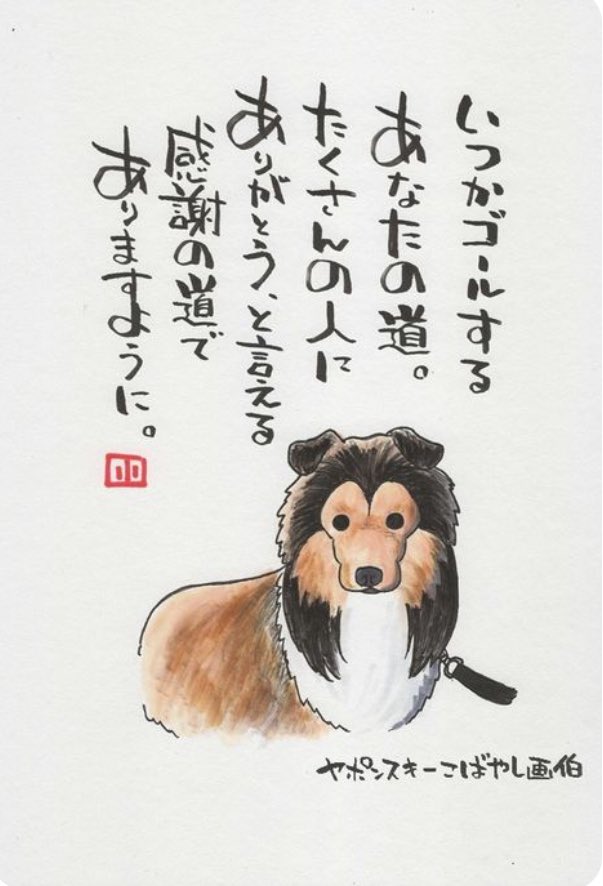 いつかゴールする
あなたの道。
たくさんの人に
ありがとう、と言える
感謝の道で
ありますように。
ヤポンスキーこばやし画伯